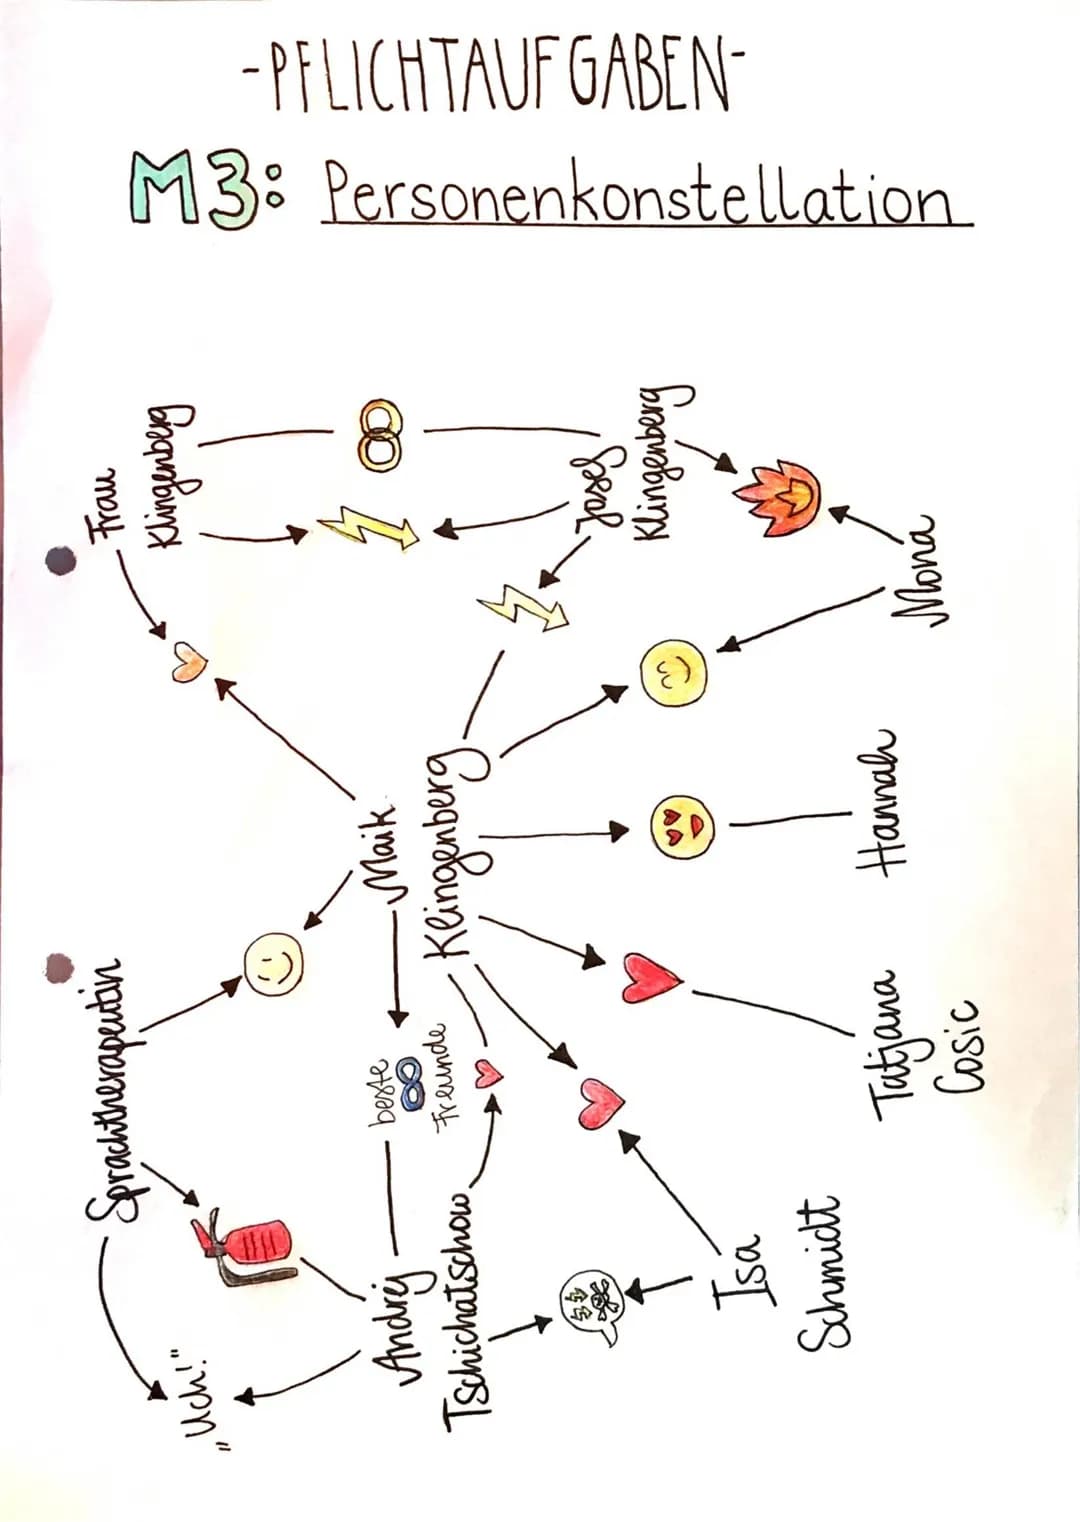 -PFLICHTAUFGABEN-
M3: Personenkonstellation
Frau
Klingenberg
Josef
Klingenberg
Mona
Maik
Klingenberg
Hannah
Sprachtherapeutin
beste
Freunde
Tatjana
Cosic
"Uch!"
Andrej
Tschichatschow
Isa
Schmidt